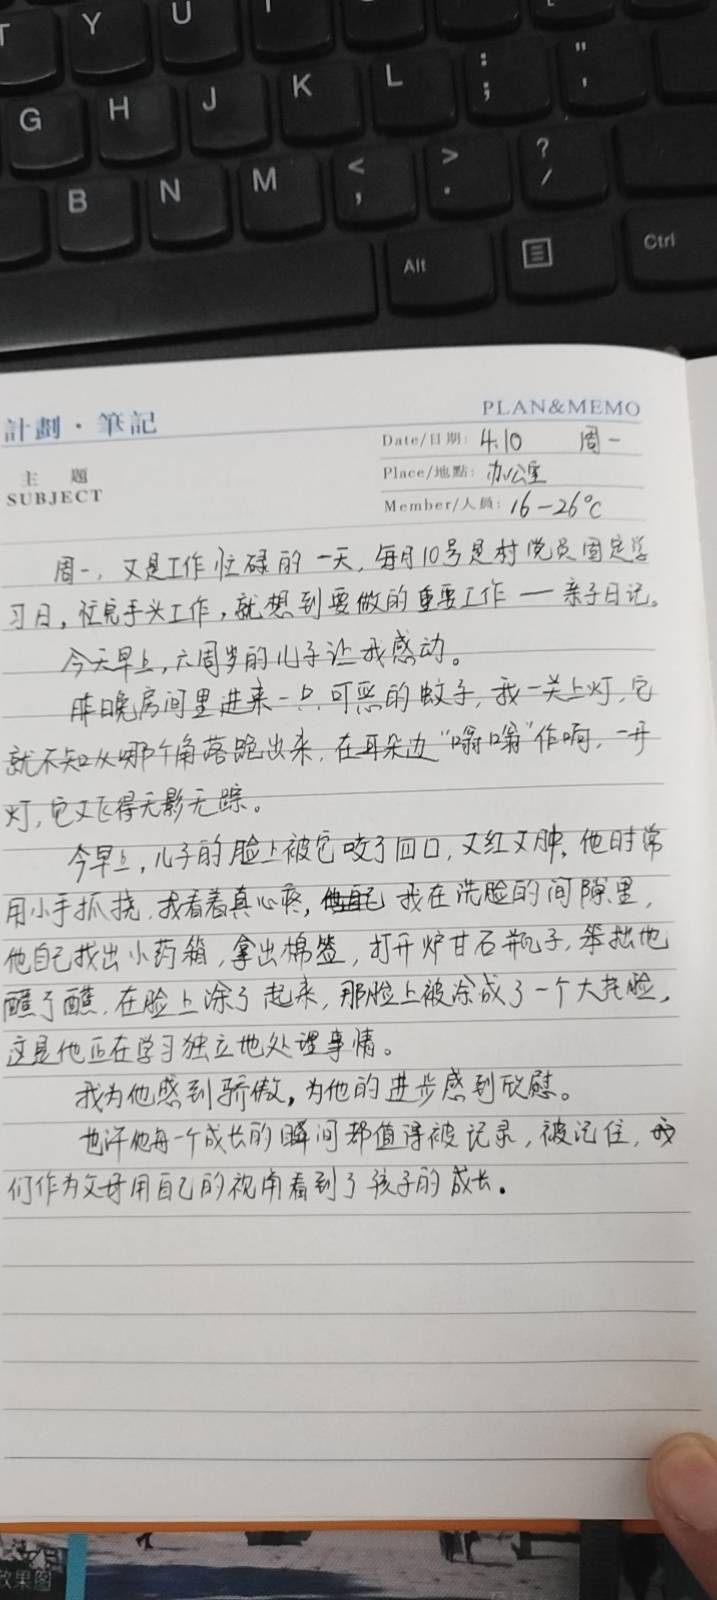 T Y U I
G H J K L : ; " '
B N M < , > . ? /
Alt Ctrl
計劃·筆記 PLAN&MEMO
主題 SUBJECT
Date/日期: 4.10 周一
Place/地點: 办公室
Member/人員: 16-26℃
周一,又是工作忙碌的一天,每月10号是村党员固定学
习日,忙完手头工作,就想到要做的重要工作—亲子日记。
今天早上,六周岁的儿子让我感动。
昨晚房间里进来一只可恶的蚊子,我一关上灯,它
就不知从哪个角落跑出来,在耳朵边“嗡嗡”作响,一开
灯,它又飞得无影无踪。
今早上,儿子的脸上被它咬了四口,又红又肿,他时常
用小手抓挠,我看着真心疼,我在洗脸的间隙里,
他自己找出小药箱,拿出棉签,打开炉甘石瓶子,笨拙地
蘸了蘸,在脸上涂了起来,那脸上被涂成了一个大花脸,
这是他正在学习独立地处理事情。
我为他感到骄傲,为他的进步感到欣慰。
也许他每一个成长的瞬间都值得被记录,被记住,我
们作为父母用自己的视角看到了孩子的成长.
效果图